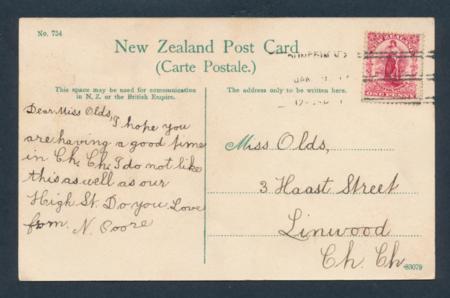 No. 734
New Zealand Post Card
(Carte Postale.)
This space may be used for communication
in N.Z. or the British Empire.
The address only to be written here.
ONE PENNY
Dear Miss Olds,
I hope you
are having a good time
in Ch. Ch. I do not like
this as well as our
High St. Do you. Love
from N. Coore
Miss Olds,
3 Haast Street
Linwood
Ch. Ch.